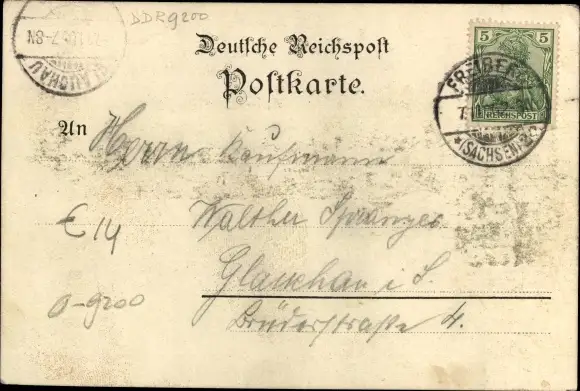 DDR 9200
GLAUCHAU
Deutsche Reichspost
Postkarte.
5 5
REICHSPOST
FREIBERG
*(SACHSEN)
An Herrn Kaufmann
Walther Spranger
Glauchau i S.
Brüderstraße 4.
€ 14
0-9200